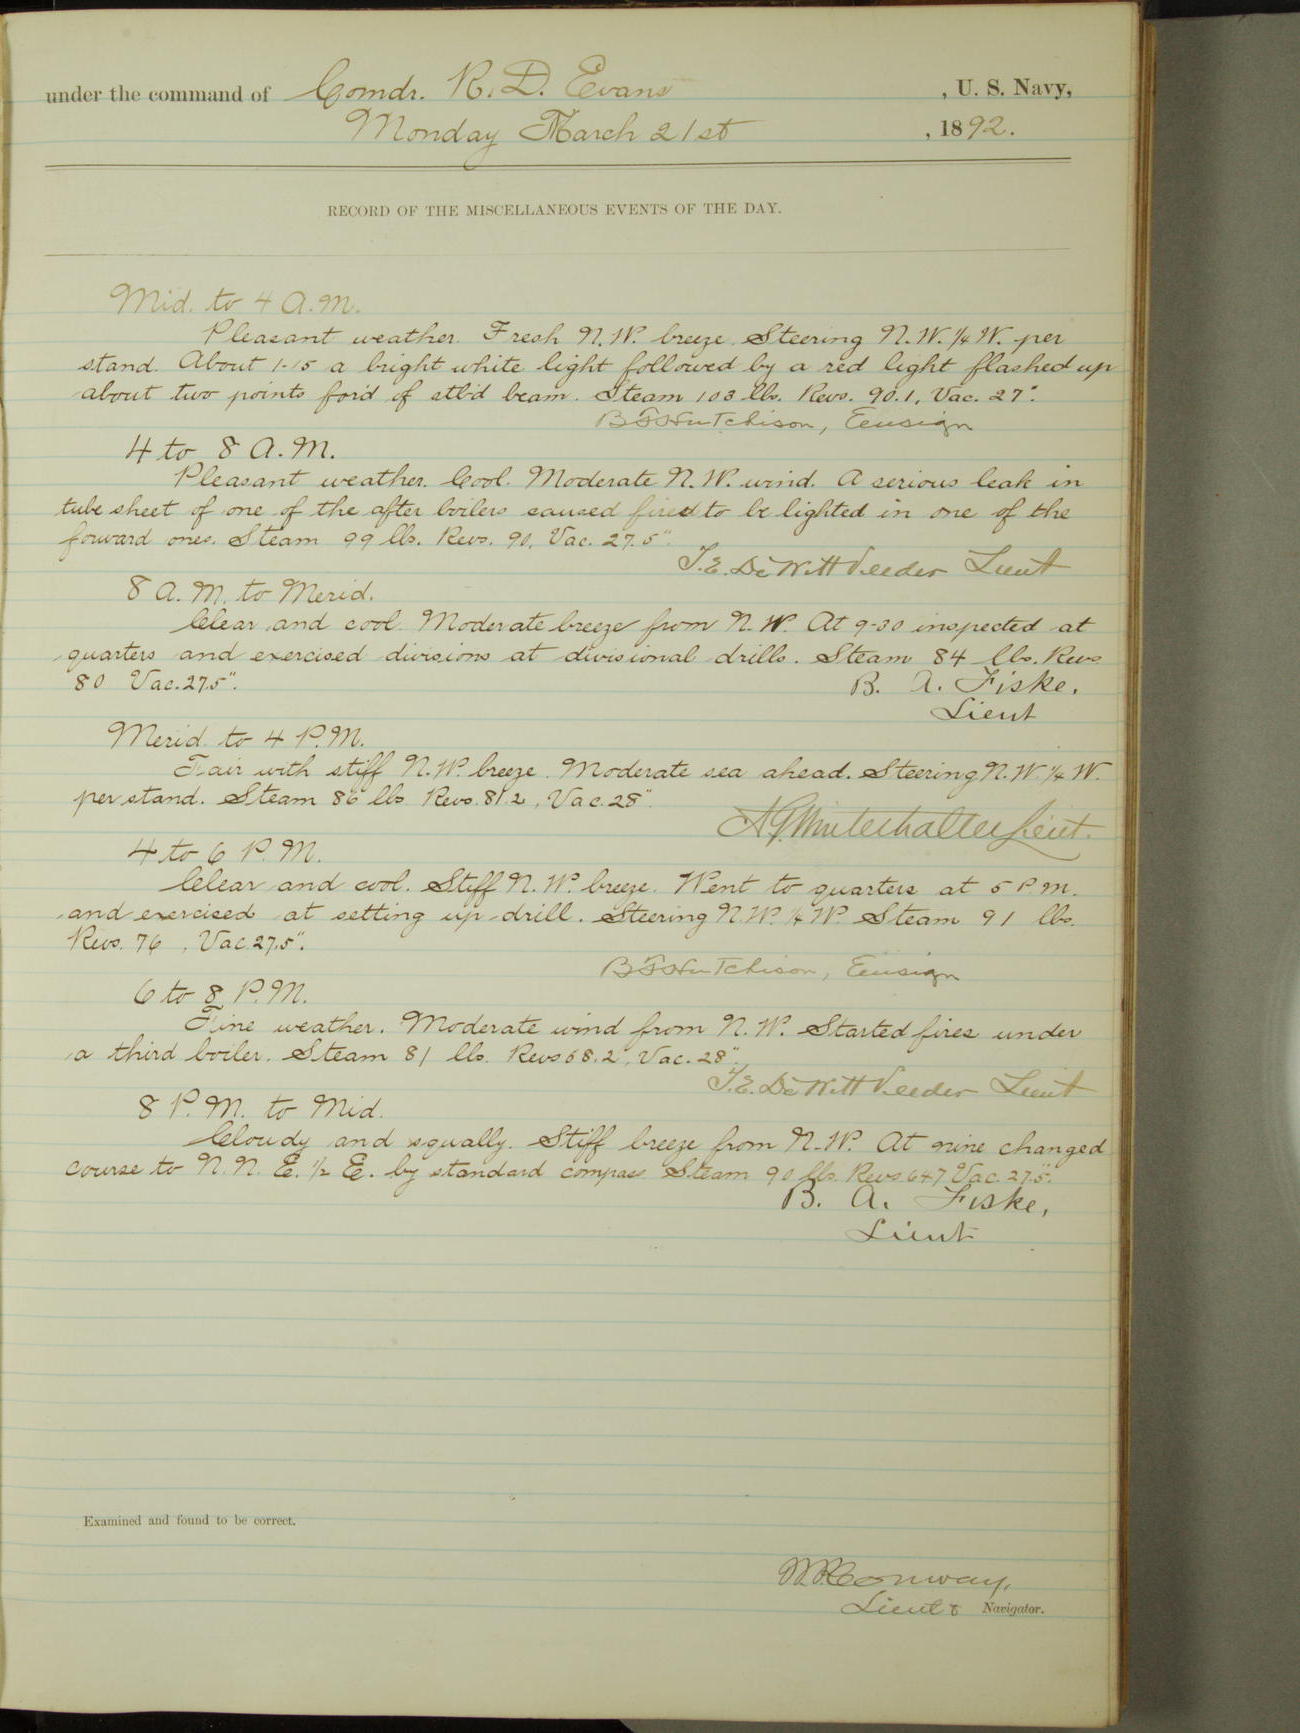 under the command of Comdr. R. D. Evans , U. S. Navy,
Monday March 21st , 1892.
RECORD OF THE MISCELLANEOUS EVENTS OF THE DAY.
Mid. to 4 A.M.
Pleasant weather. Fresh N.W. breeze. Steering N.W. ¼ W. per
stand. About 1-15 a bright white light followed by a red light flashed up
about two points for'd of stb'd beam. Steam 103 lbs. Revs. 90.1, Vac. 27".
B F Hutchison, Ensign
4 to 8 A.M.
Pleasant weather. Cool. Moderate N.W. wind. A serious leak in
tube sheet of one of the after boilers caused fires to be lighted in one of the
forward ones. Steam 99 lbs. Revs. 90, Vac. 27.5".
T.E. DeWitt Veeder Lieut
8 A.M. to Merid.
Clear and cool. Moderate breeze from N.W. At 9-30 inspected at
quarters and exercised divisions at divisional drills. Steam 84 lbs. Revs
80 Vac. 27.5".
B. A. Fiske,
Lieut
Merid. to 4 P.M.
Fair with stiff N.W. breeze. Moderate sea ahead. Steering N.W. ¼ W.
per stand. Steam 86 lbs. Revs. 81.2, Vac. 28".
A G Winterhalter Lieut.
4 to 6 P.M.
Clear and cool. Stiff N.W. breeze. Went to quarters at 5 P.M.
and exercised at setting up drill. Steering N.W. ¼ W. Steam 91 lbs.
Revs. 76, Vac. 27.5".
B F Hutchison, Ensign
6 to 8 P.M.
Fine weather. Moderate wind from N.W. Started fires under
a third boiler. Steam 81 lbs. Revs 68.2, Vac. 28".
T.E. DeWitt Veeder Lieut
8 P.M. to Mid.
Cloudy and squally. Stiff breeze from N.W. At nine changed
course to N.N.E. ½ E. by standard compass. Steam 90 lbs. Revs 64.7 Vac. 27.5".
B. A. Fiske,
Lieut
Examined and found to be correct.
Conway,
Lieut & Navigator.